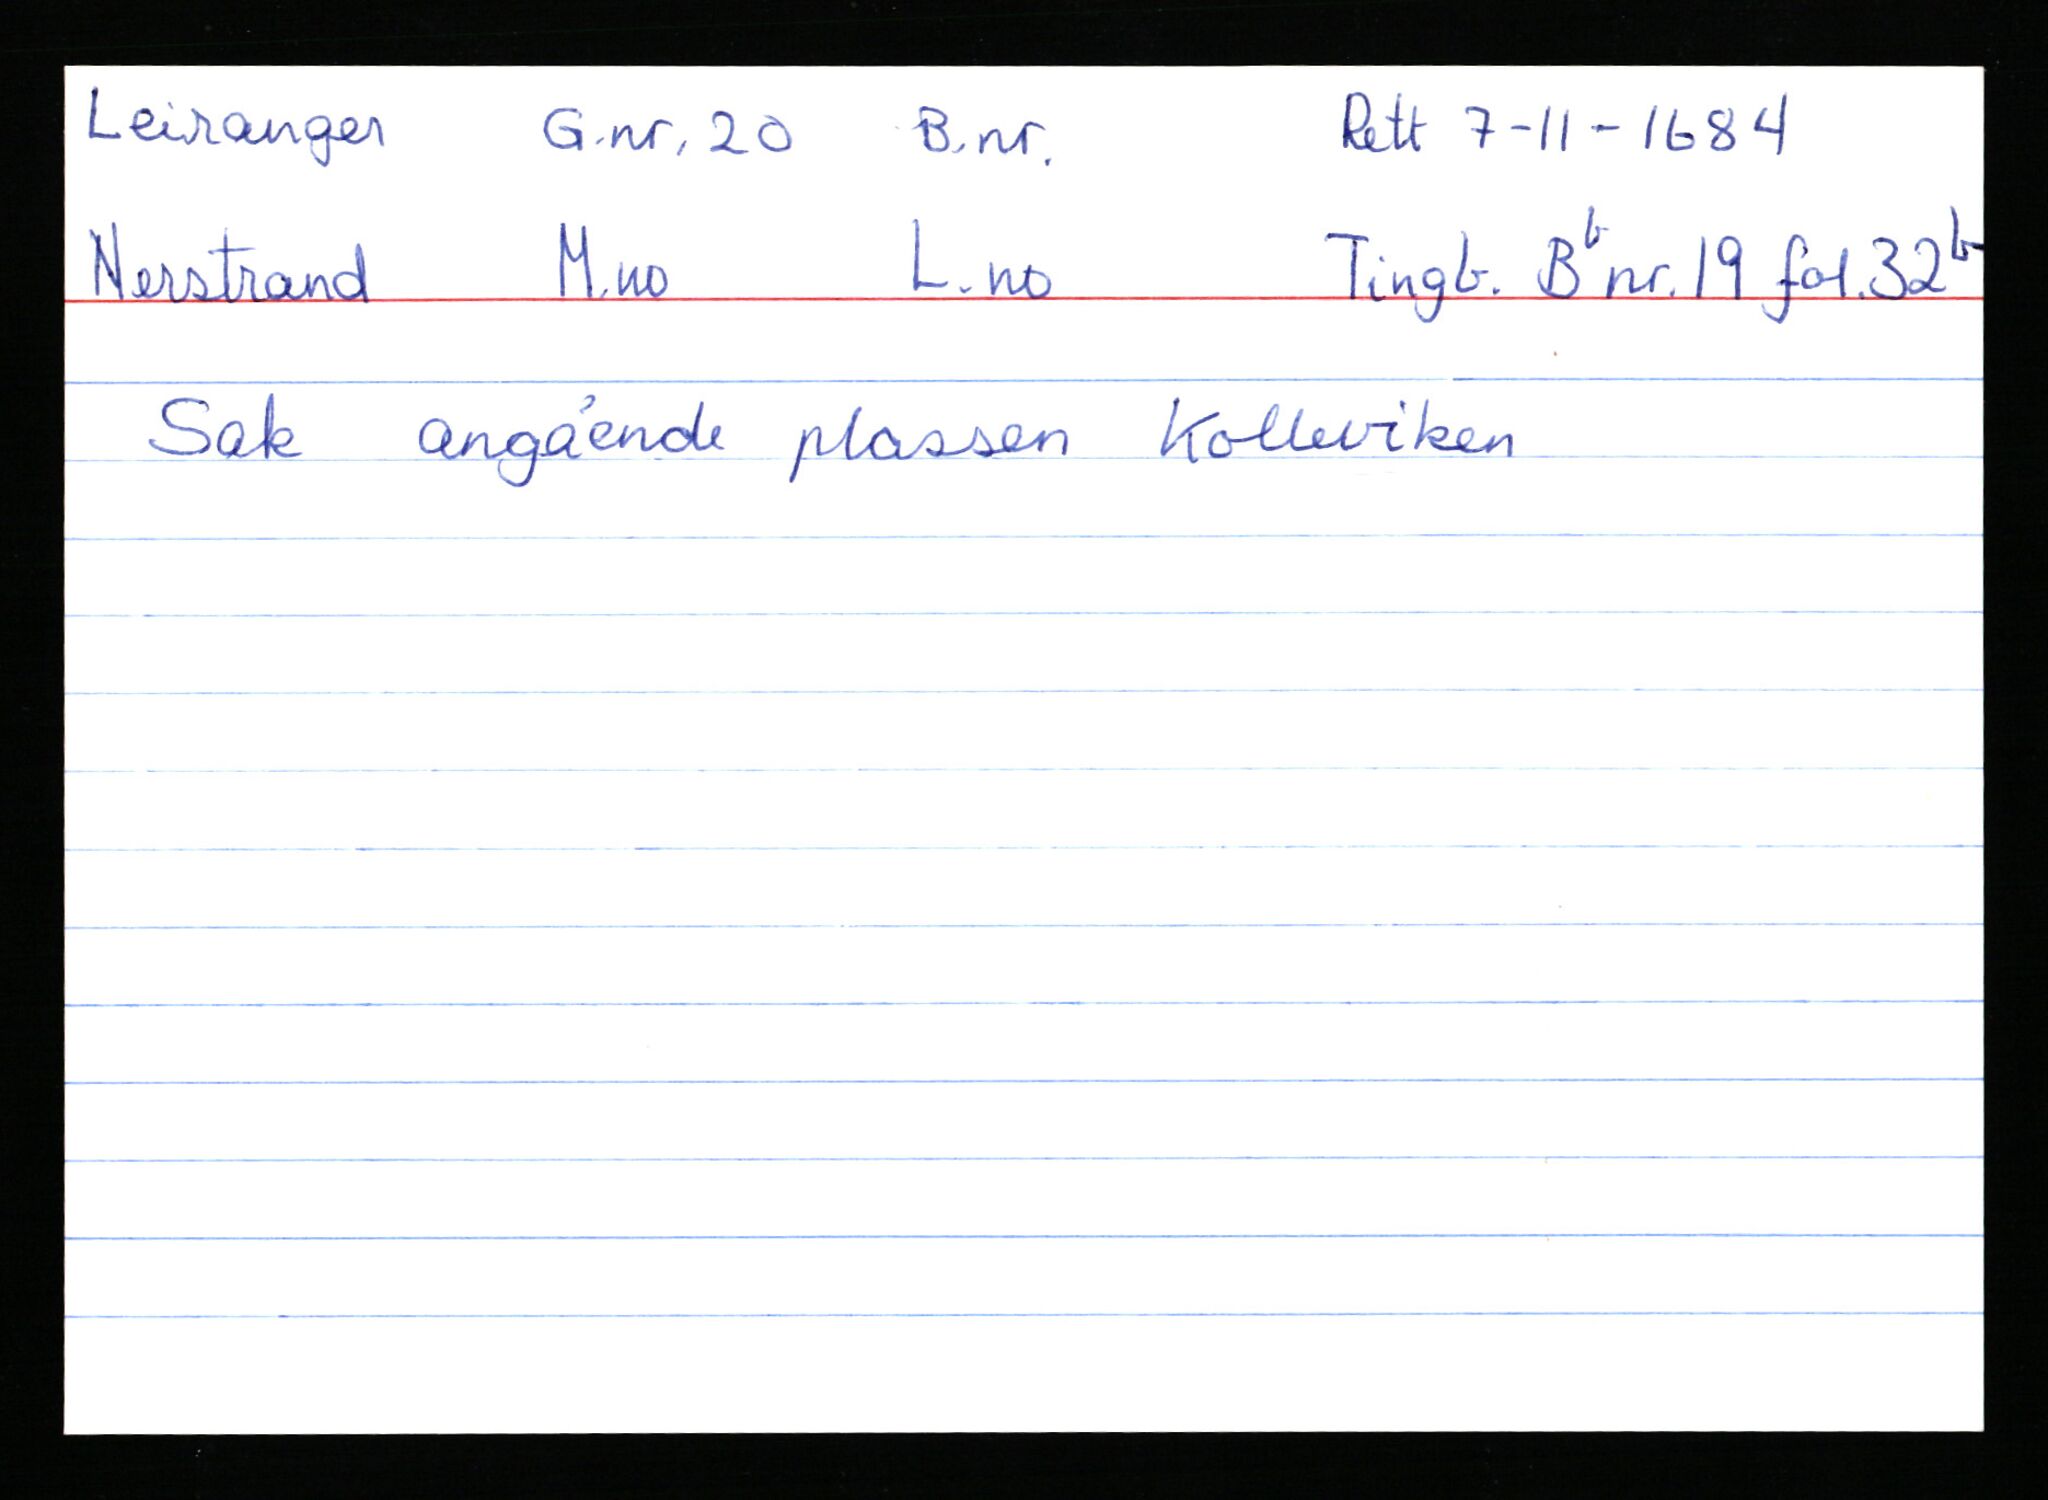 Leiranger G.nr. 20 B.nr. Rett 7-11-1684
Nerstrand M.no L.no Tingb. Bᵇ nr. 19 fol. 32ᵇ
Sak angående plassen Kolleviken